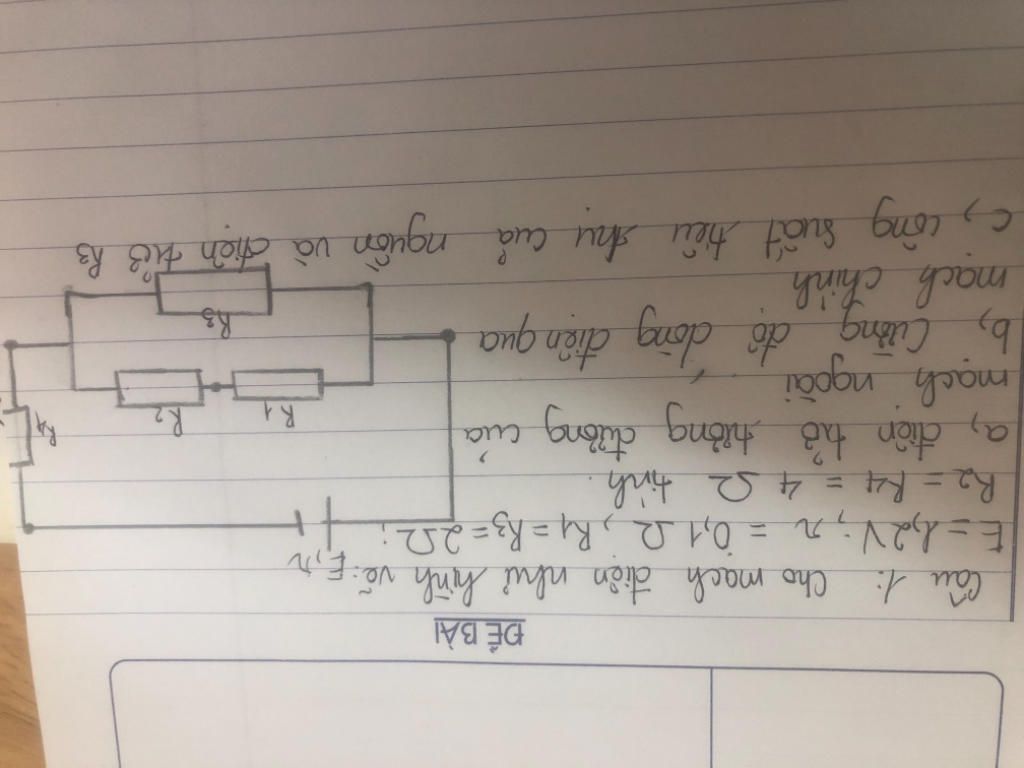 ĐỀ BÀI
Câu 1: Cho mạch điện như hình vẽ:
E = 1,2V; r = 0,1 Ω, R1 = R3 = 2Ω;
R2 = R4 = 4 Ω tính.
a, điện trở tương đương của
mạch ngoài
b, Cường độ dòng điện qua
mạch chính
c, công suất tiêu thụ của nguồn và điện trở R3
E, r
R4
R1
R2
R3